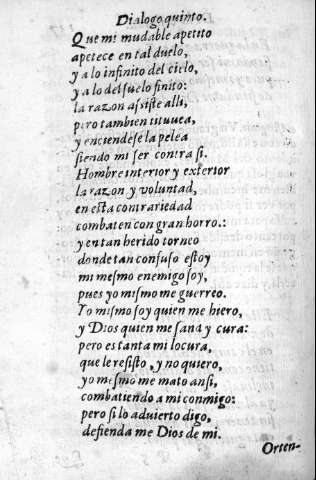 Dialogo quinto.
Que mi mudable apetito
apetece en tal duelo,
y a lo infinito del cielo,
y a lo del suelo finito:
la razon assiste alli,
pero tambien tituuea,
y enciendese la pelea
siendo mi ser contra si.
Hombre interior y exterior
la razon y voluntad,
en esta contrariedad
combaten con gran horro.:
y en tan herido torneo
donde tan confuso estoy
mi mesmo enemigo soy,
pues yo mismo me guerreo.
Yo mismo soy quien me hiero,
y Dios quien me sana y cura:
pero es tanta mi locura,
que le resisto, y no quiero,
yo mesmo me mato ansi,
combatiendo a mi conmigo:
pero si lo aduierto digo,
defienda me Dios de mi.
Orten-